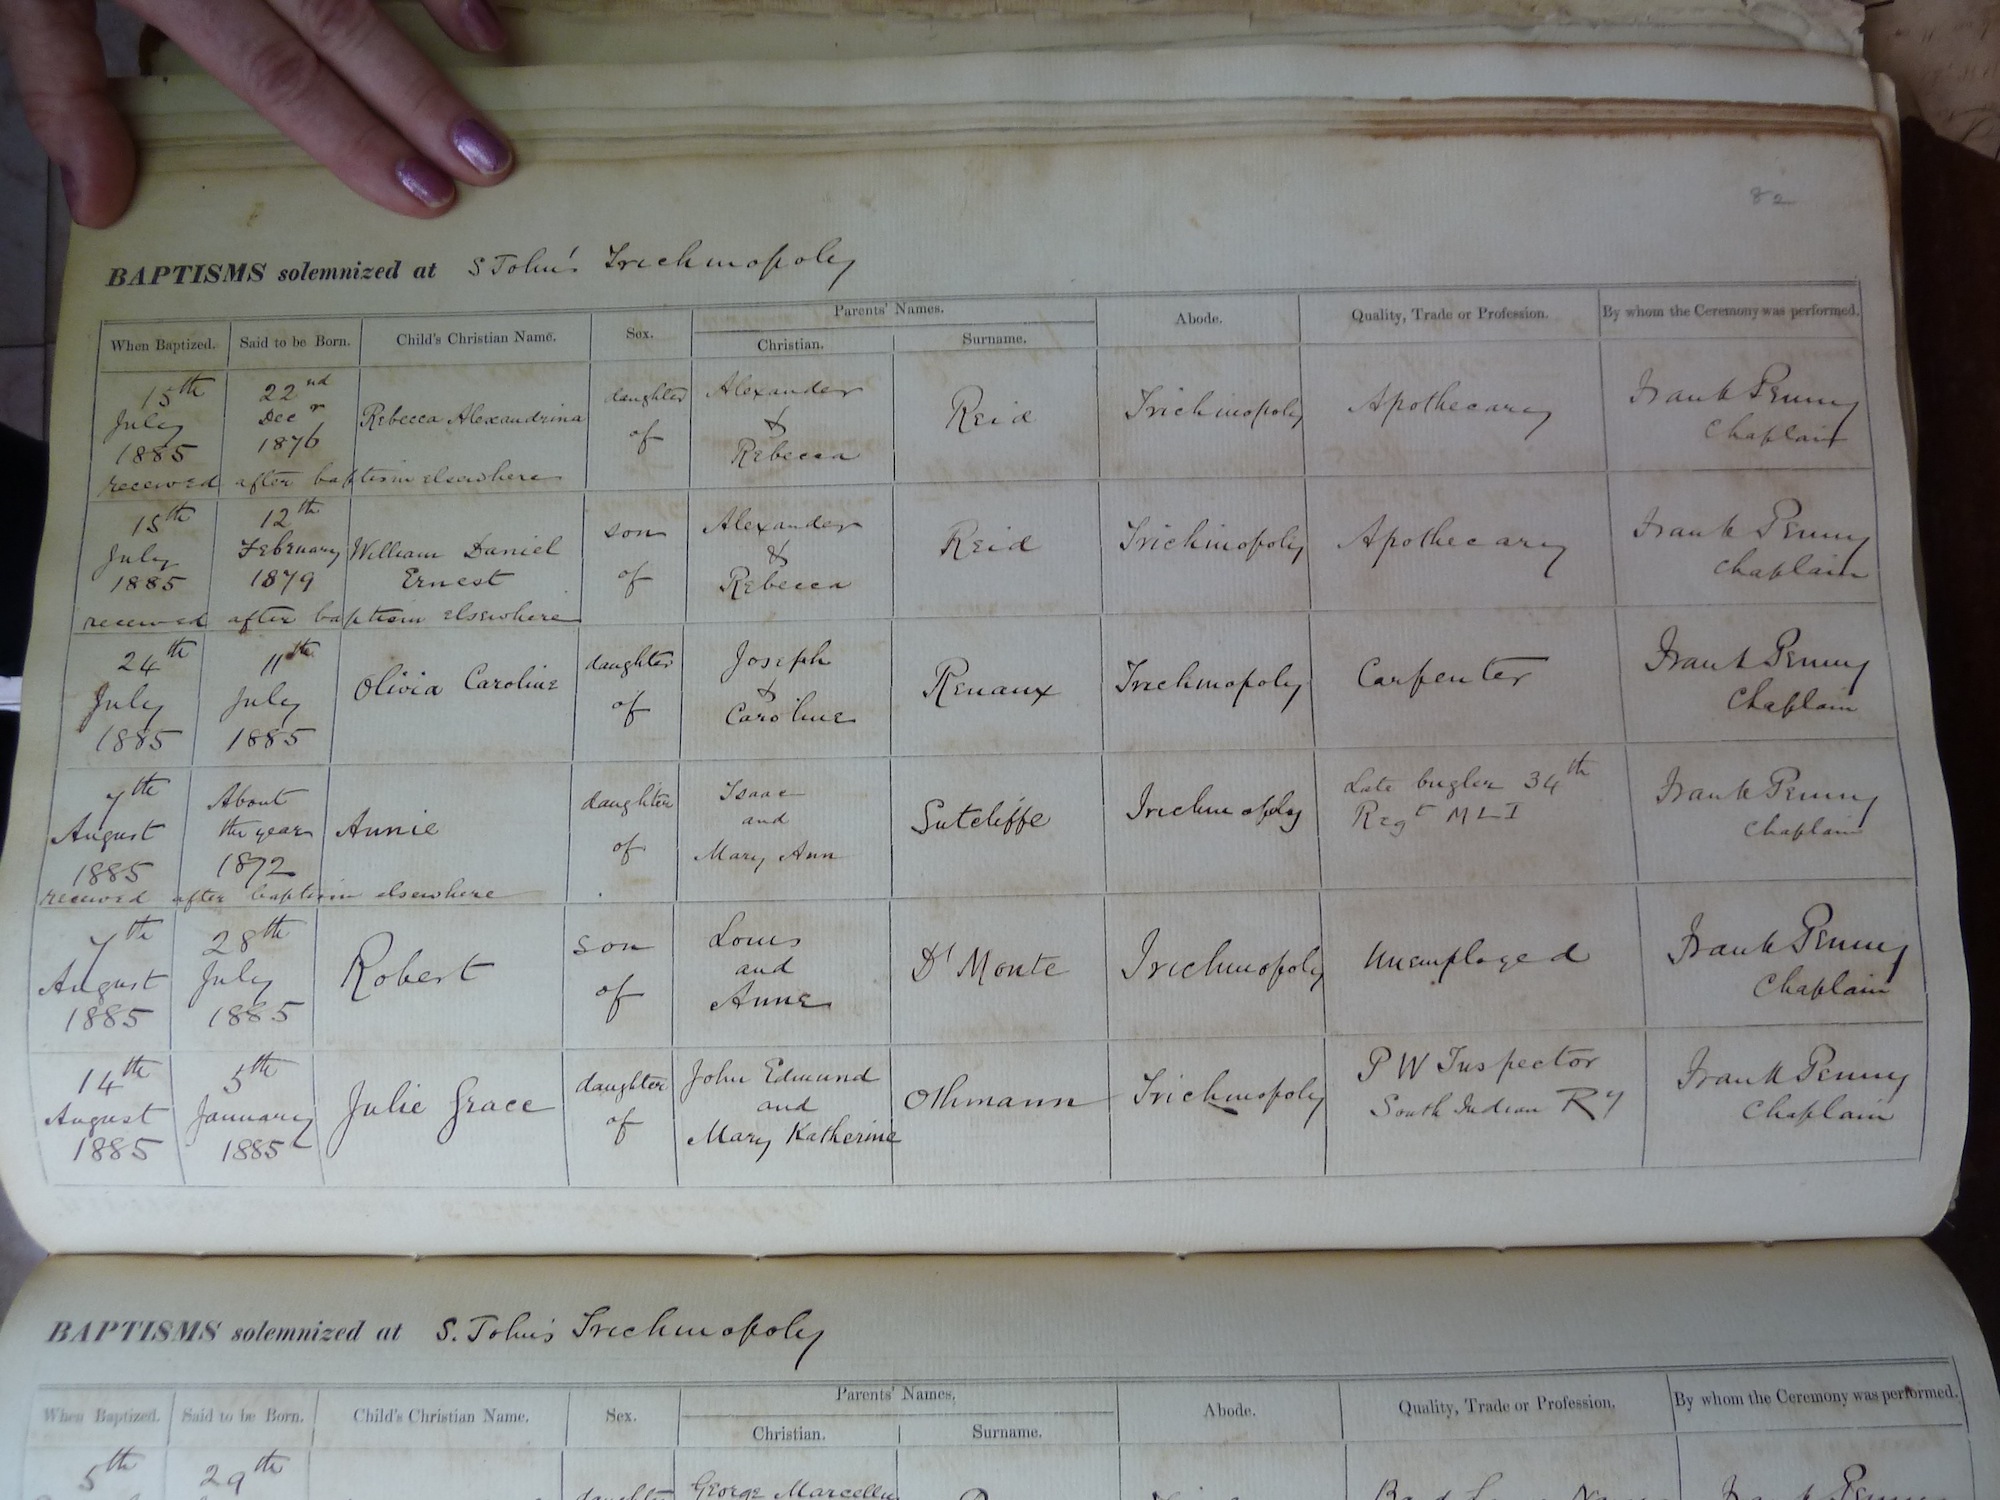 82
BAPTISMS solemnized at S John's Trichinopoly
When Baptized. Said to be Born. Child's Christian Name. Sex. Parents' Names. Christian. Surname. Abode. Quality, Trade or Profession. By whom the Ceremony was performed.
15th July 1885 22nd Decr 1876 Rebecca Alexandrina daughter of Alexander & Rebecca Reid Trichinopoly Apothecary Frank Penny Chaplain
received after baptism elsewhere
15th July 1885 12th February 1879 William Daniel Ernest son of Alexander & Rebecca Reid Trichinopoly Apothecary Frank Penny Chaplain
received after baptism elsewhere
24th July 1885 11th July 1885 Olivia Caroline daughter of Joseph & Caroline Renaux Trichinopoly Carpenter Frank Penny Chaplain
7th August 1885 About the year 1872 Annie daughter of Isaac and Mary Ann Sutcliffe Trichinopoly Late bugler 34th Regt MLI Frank Penny Chaplain
received after baptism elsewhere
7th August 1885 28th July 1885 Robert son of Louis and Anne D'Monte Trichinopoly Unemployed Frank Penny Chaplain
14th August 1885 5th January 1885 Julie Grace daughter of John Edmund and Mary Katherine Othmann Trichinopoly P W Inspector South Indian Ry Frank Penny Chaplain
BAPTISMS solemnized at S. John's Trichinopoly
When Baptized. Said to be Born. Child's Christian Name. Sex. Parents' Names. Christian. Surname. Abode. Quality, Trade or Profession. By whom the Ceremony was performed.
5th 29th daughter George Marcellus Frank Penny